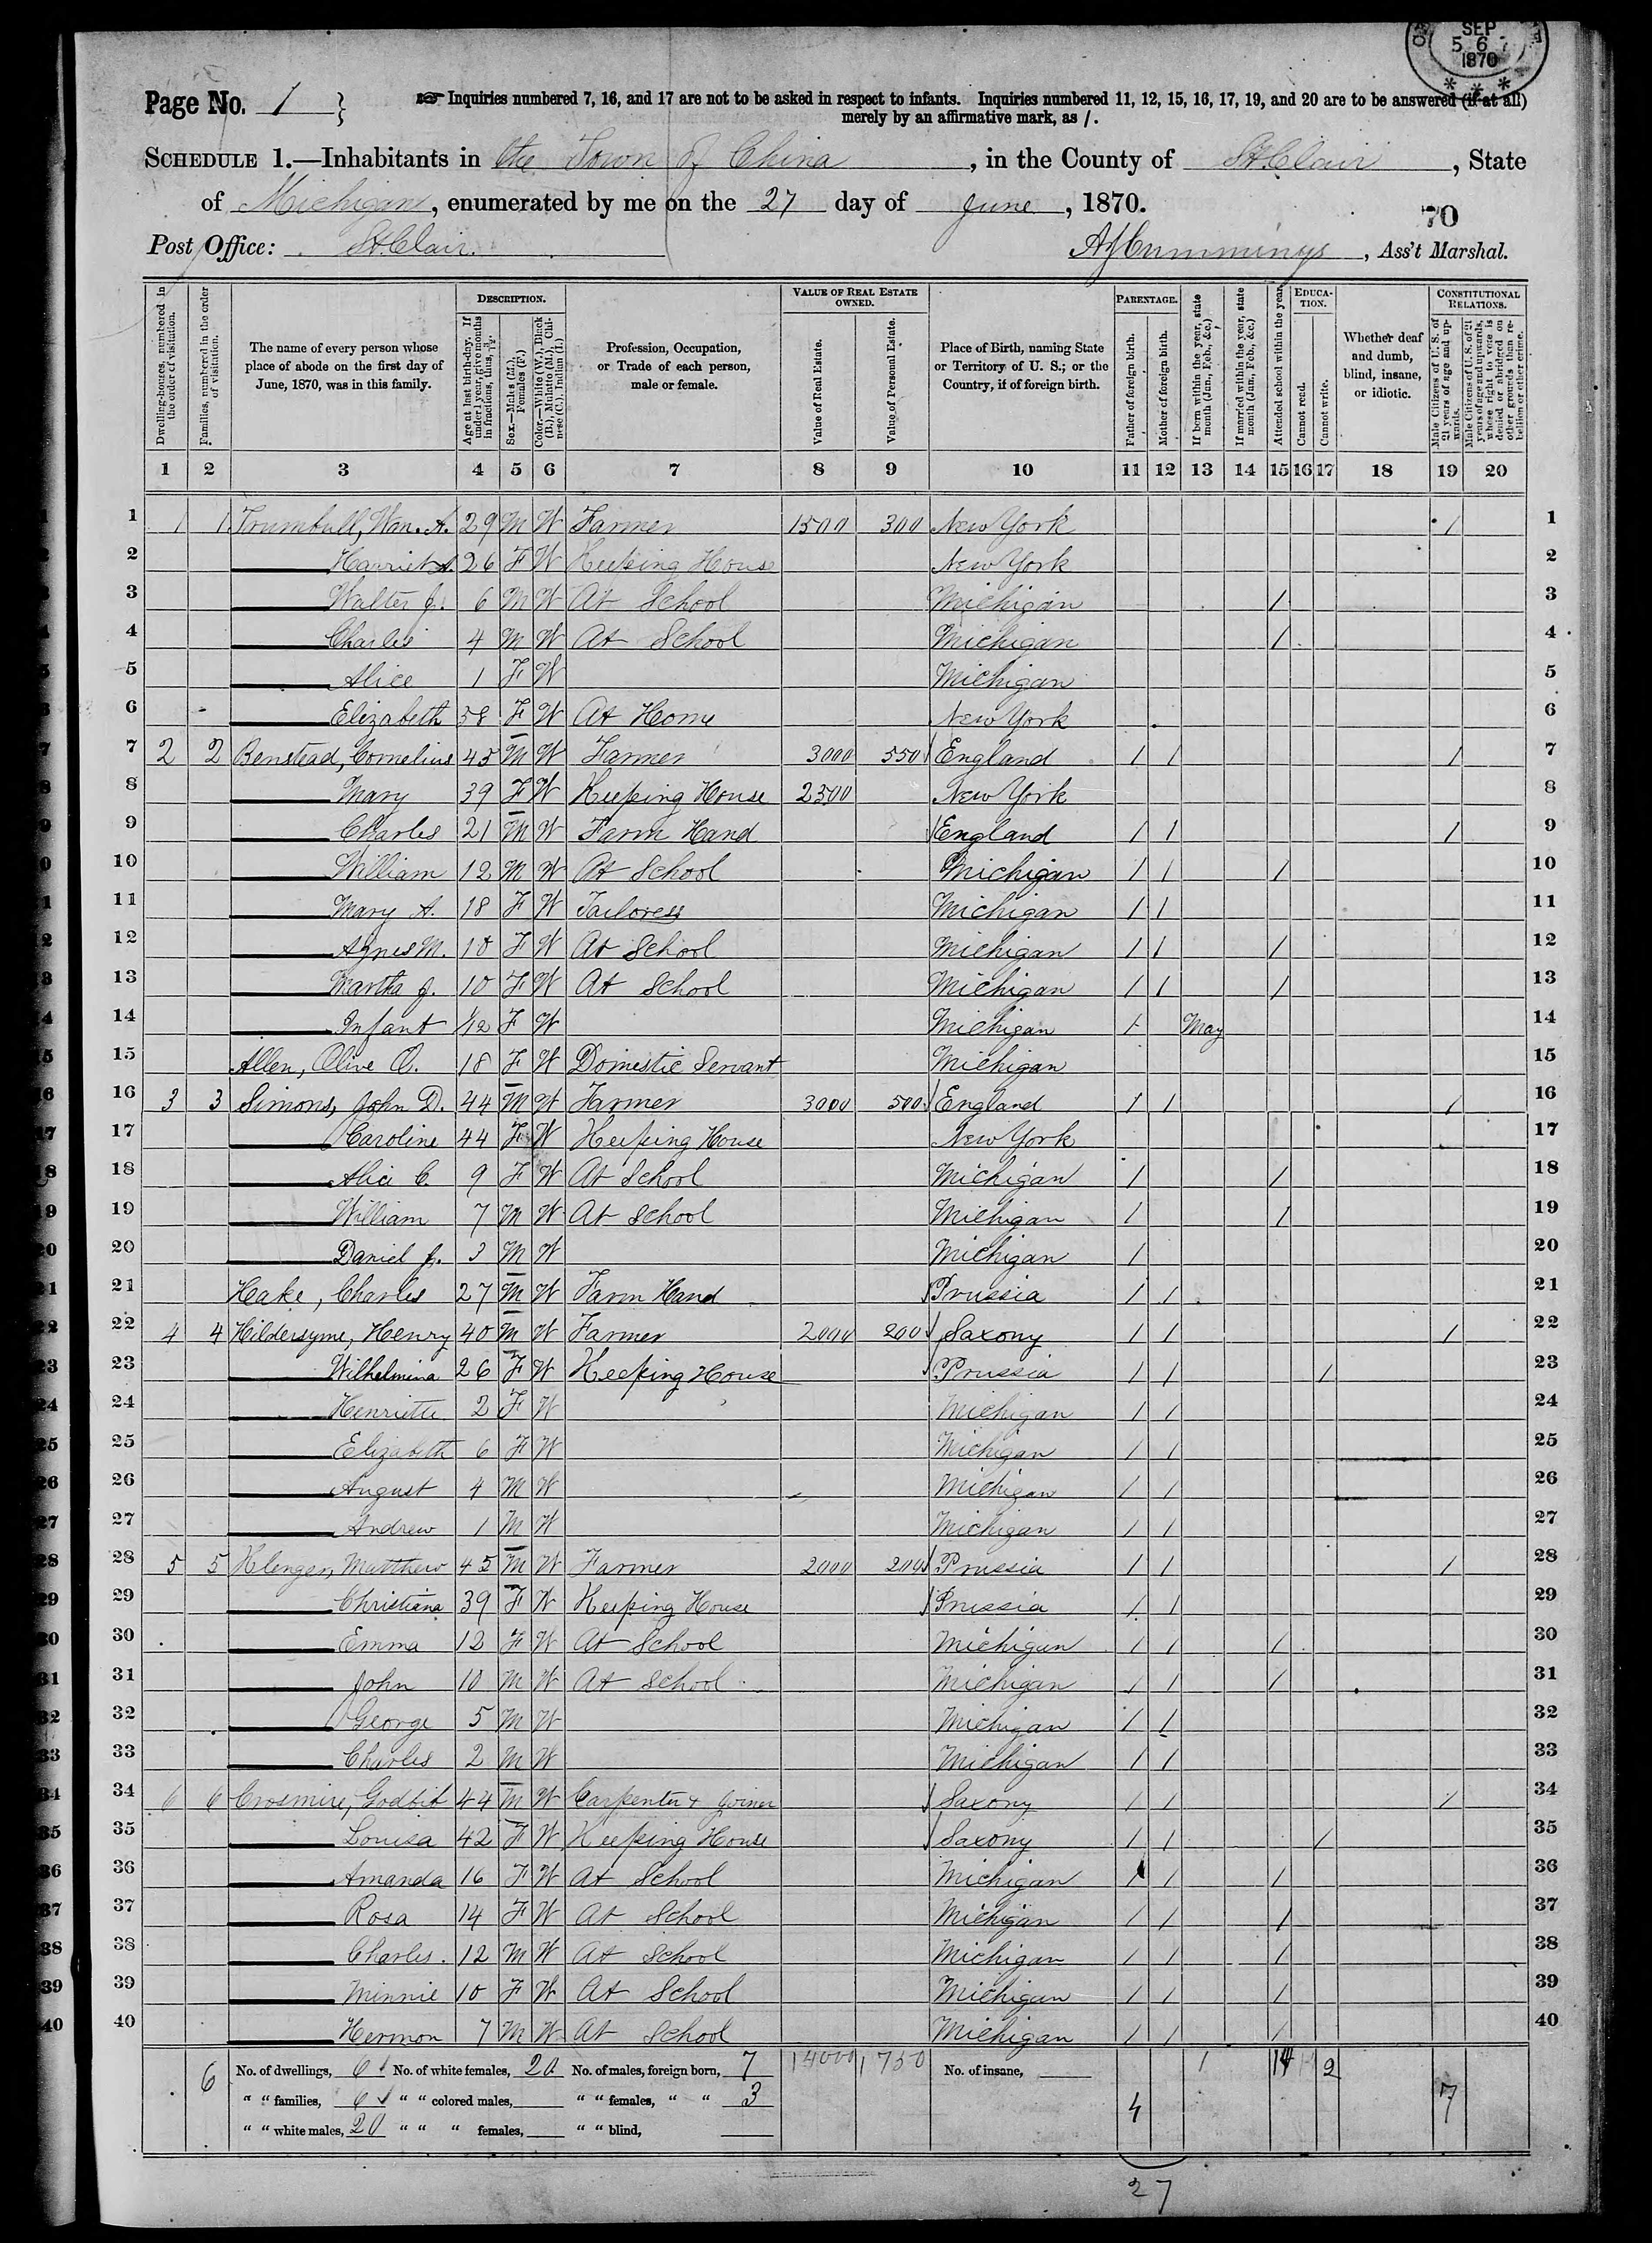 SEP
5 6 7
1870
Page No. 1 } ☞ Inquiries numbered 7, 16, and 17 are not to be asked in respect to infants. Inquiries numbered 11, 12, 15, 16, 17, 19, and 20 are to be answered (if at all)
merely by an affirmative mark, as /.
SCHEDULE 1.—Inhabitants in the Town of China, in the County of St. Clair, State
of Michigan, enumerated by me on the 27 day of June, 1870.
70
Post Office: St. Clair. A J Cummings, Ass't Marshal.
Dwelling-houses, numbered in the order of visitation.
Families, numbered in the order of visitation.
The name of every person whose place of abode on the first day of June, 1870, was in this family.
DESCRIPTION.
Age at last birth-day. If under 1 year, give months in fractions, thus, 3/12.
Sex.—Males (M.), Females (F.)
Color.—White (W.), Black (B.), Mulatto (M.), Chinese (C.), Indian (I.)
Profession, Occupation, or Trade of each person, male or female.
VALUE OF REAL ESTATE OWNED.
Value of Real Estate.
Value of Personal Estate.
Place of Birth, naming State or Territory of U. S.; or the Country, if of foreign birth.
PARENTAGE.
Father of foreign birth.
Mother of foreign birth.
If born within the year, state month (Jan., Feb., &c.)
If married within the year, state month (Jan., Feb., &c.)
Attended school within the year.
EDUCATION.
Cannot read.
Cannot write.
Whether deaf and dumb, blind, insane, or idiotic.
CONSTITUTIONAL RELATIONS.
Male Citizens of U. S. of 21 years of age and upwards.
Male Citizens of U. S. of 21 years of age and upwards, whose right to vote is denied or abridged on other grounds than rebellion or other crime.
1 2 3 4 5 6 7 8 9 10 11 12 13 14 15 16 17 18 19 20
1 1 1 Trumbull, Wm. A. 29 M W Farmer 1500 300 New York / 1
2 Harriet A. 26 F W Keeping House New York 2
3 Walter J. 6 M W At School Michigan / 3
4 Charles 4 M W At School Michigan / 4
5 Alice 1 F W Michigan 5
6 Elizabeth 58 F W At Home New York 6
7 2 2 Benstead, Cornelius 45 M W Farmer 3000 550 England / / / 7
8 Mary 39 F W Keeping House 2500 New York 8
9 Charles 21 M W Farm Hand England / / / 9
10 William 12 M W At School Michigan / / / 10
11 Mary A. 18 F W Tailoress Michigan / / 11
12 Agnes M. 10 F W At School Michigan / / / 12
13 Martha J. 10 F W At School Michigan / / / 13
14 Infant 1/12 F W Michigan / May 14
15 Allen, Olive O. 18 F W Domestic Servant Michigan 15
16 3 3 Simons, John D. 44 M W Farmer 3000 500 England / / / 16
17 Caroline 44 F W Keeping House New York 17
18 Alice C. 9 F W At School Michigan / / 18
19 William 7 M W At School Michigan / / 19
20 Daniel J. 3 M W Michigan / 20
21 Hake, Charles 27 M W Farm Hand Prussia / / 21
22 4 4 Hildersyme, Henry 40 M W Farmer 2000 200 Saxony / / / 22
23 Wilhelmina 26 F W Keeping House Prussia / / / 23
24 Henriette 2 F W Michigan / / 24
25 Elizabeth 6 F W Michigan / / 25
26 August 4 M W Michigan / / 26
27 Andrew 1 M W Michigan / / 27
28 5 5 Klenger, Matthew 45 M W Farmer 2000 200 Prussia / / / 28
29 Christiana 39 F W Keeping House Prussia / / 29
30 Emma 12 F W At School Michigan / / / 30
31 John 10 M W At School Michigan / / / 31
32 George 5 M W Michigan / / 32
33 Charles 2 M W Michigan / / 33
34 6 6 Crosmire, Godlib 44 M W Carpenter & Joiner Saxony / / / 34
35 Louisa 42 F W Keeping House Saxony / / / 35
36 Amanda 16 F W At School Michigan / / / 36
37 Rosa 14 F W At School Michigan / / / 37
38 Charles 12 M W At School Michigan / / / 38
39 Minnie 10 F W At School Michigan / / / 39
40 Hermon 7 M W At School Michigan / / / 40
6 No. of dwellings, 6 No. of white females, 20 No. of males, foreign born, 7 14000 1750 No. of insane, 1 14 2
" " families, 6 " " colored males, " " females, " " 3 4 7
" " white males, 20 " " " females, " " blind,
27